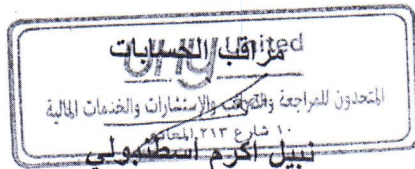 مراقب الحسابات
UHY United
المتحدون للمراجعة والضرائب والاستشارات والخدمات المالية
١٠ شارع ٢١٣ المعادي
نبيل أكرم اسطنبولي